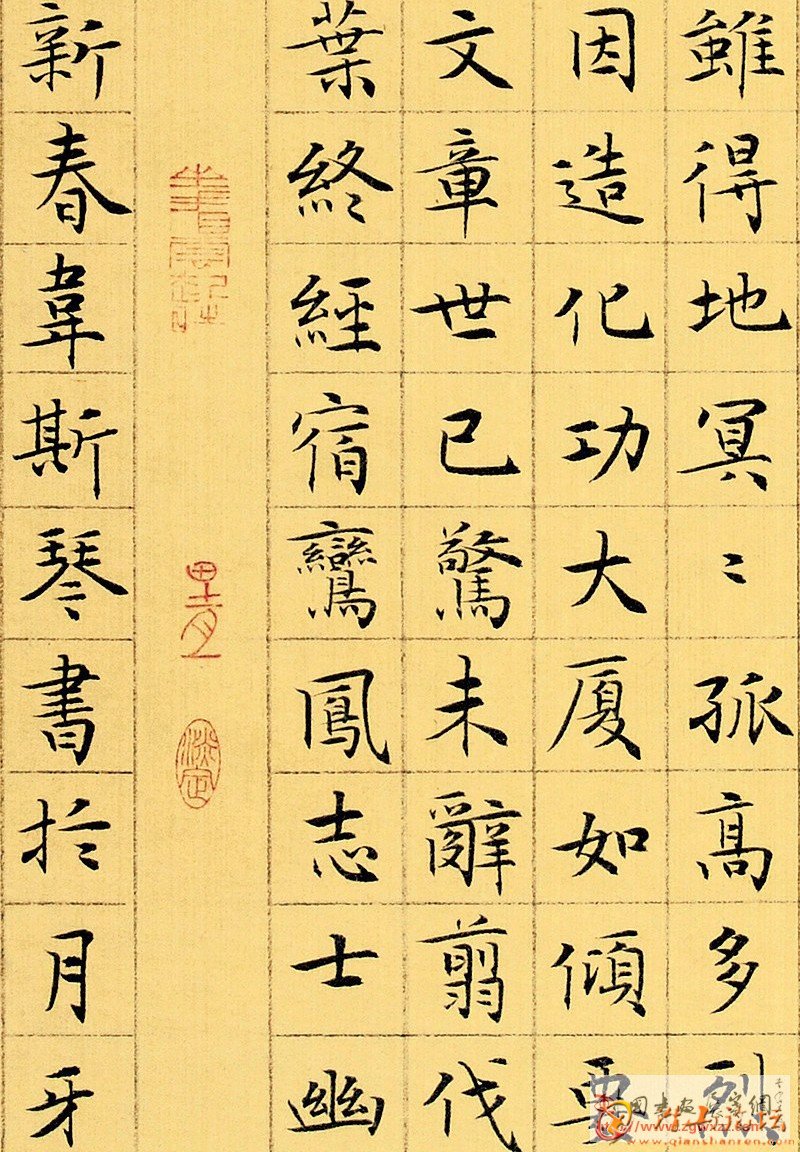 雖得地冥〻孤高多烈
因造化功大厦如傾要
文章世已驚未辭翦伐
葉終經宿鸞鳳志士幽
新春韋斯琴書於月牙
www.qianshanren.com